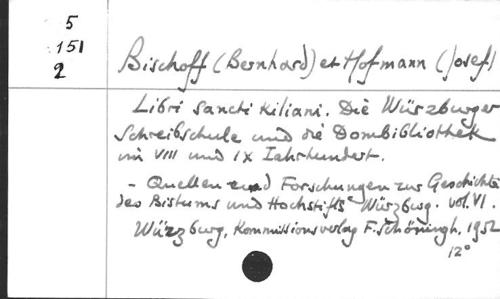 5
151
2
Bischoff (Bernhard) et Hofmann (Josef)
Libri sancti Kiliani. Die Würzburger
Schreibschule und die Dombibliothek
im VIII und IX Iahrhundert.
- Quellen und Forschungen zur Geschichte
des Bistums und Hochstifts Würzburg. vol. VI.
Würzburg, Kommissionsverlag F. Schöningh, 1952
12°